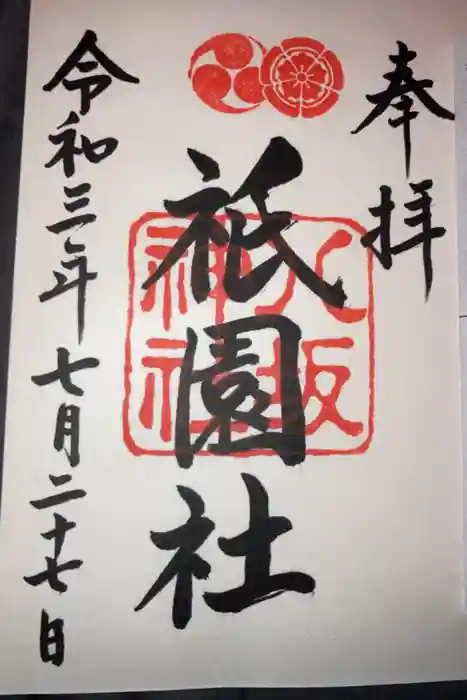 奉拝
祇園社
八坂
神社
令和三年七月二十七日